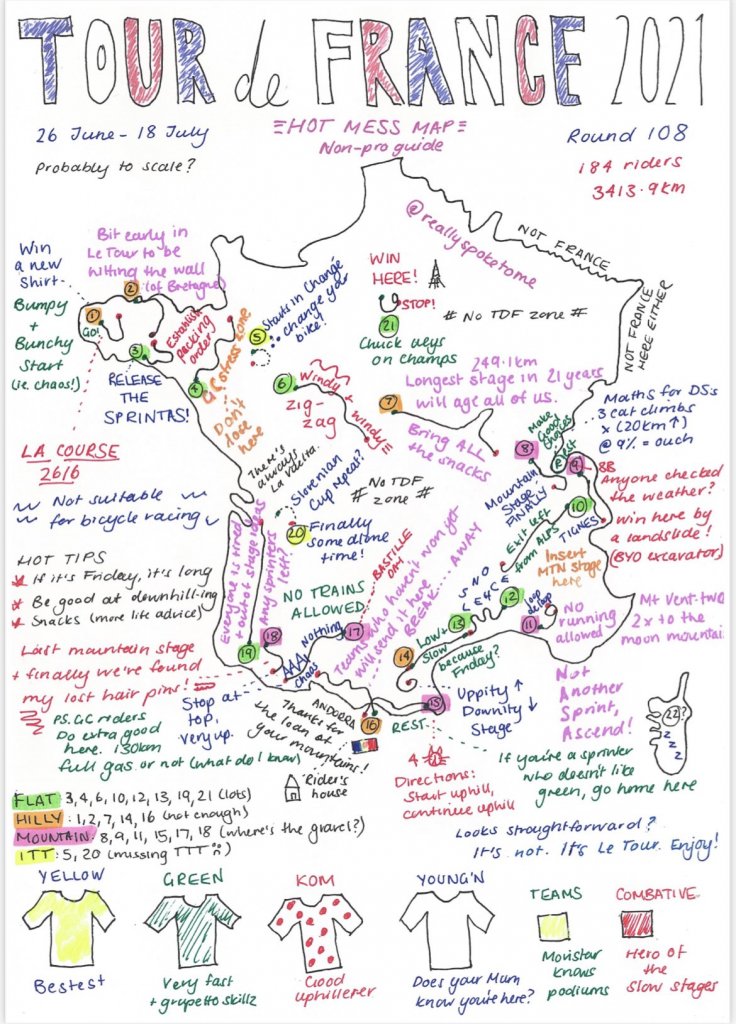 TOUR de FRANCE 2021
26 June - 18 July
≡HOT MESS MAP≡
Non-pro guide
Round 108
Probably to scale?
184 riders
3413.9km
@reallyspoketome
NOT FRANCE
NOT FRANCE
HERE EITHER
Win
a new
shirt-
Bumpy
+
Bunchy
Start
(ie. chaos!)
Bit early in
Le Tour to be
hitting the wall
(of Bretagne)
2
1
GO!
3
4
Establish
pecking
order
RELEASE
THE
SPRINTAS!
GC stress zone
Don't
lose
here
5
Starts in Changé
change your
bike!
WIN
HERE!
STOP!
21
Chuck ueys
on Champs
# No TDF zone #
6
Windy + windy
Zig-
zag
7
249.1km
Longest stage in 21 years
will age all of us.
Bring ALL
the snacks
Maths for DS's
3 cat climbs
x (20km↑)
@ 9% = ouch
8
Make
Good
choices
Rest
9
BB
Anyone checked
the weather?
Win here by
a landslide!
(BYO excavator)
Mountain
Stage
FINALLY
10
TIGNES
Exit left
from ALPS
Insert
MTN stage
here
LA COURSE
26/6
Not suitable
for bicycle racing
There's
always
La Vuelta.
Slovenian
Cup repeat?
No TDF
# zone #
20
Finally
some alone
time!
HOT TIPS
* If it's Friday, it's long
* Be good at downhill-ing
* Snacks (more life advice)
Everyone is tired
out of stage ideas
Any sprinters
left?
NO TRAINS
ALLOWED
BASTILLE
DAY
Teams who haven't won yet
will send it here
BREAK.... AWAY
S N O
L E Y C E
12
loop
de loop
11
No
running
allowed
Mt Vent-two
2 x to the
moon mountain
13
Low+
Slow
because
Friday?
18
17
Nothing
AAAA
chaos
19
14
Last mountain stage
+ finally we've found
my lost hair pins!
Stop at
top,
very up.
P.S. GC riders
Do extra good
here. 130km
full gas or not (what do I know)
ANDORRA
Thanks for
the loan of
your mountains!
16
15
REST
Uppity ↑
Downity ↓
Stage
Not
Another
Sprint,
Ascend!
22?
z
z
z
Rider's
house
4
Directions:
Start uphill,
continue uphill
If you're a sprinter
who doesn't like
green, go home here
FLAT 3,4,6,10,12,13,19,21 (lots)
HILLY: 1,2,7,14,16 (not enough)
MOUNTAIN: 8,9,11,15,17,18 (where's the gravel?)
ITT: 5, 20 (missing TTT)
Looks straightforward?
It's not. It's Le Tour. Enjoy!
YELLOW
Bestest
GREEN
Very fast
+ grupetto skillz
KOM
Good
uphillerer
YOUNG'N
Does your Mum
know you're here?
TEAMS
Movistar
knows
podiums
COMBATIVE
Hero of
the
slow stages